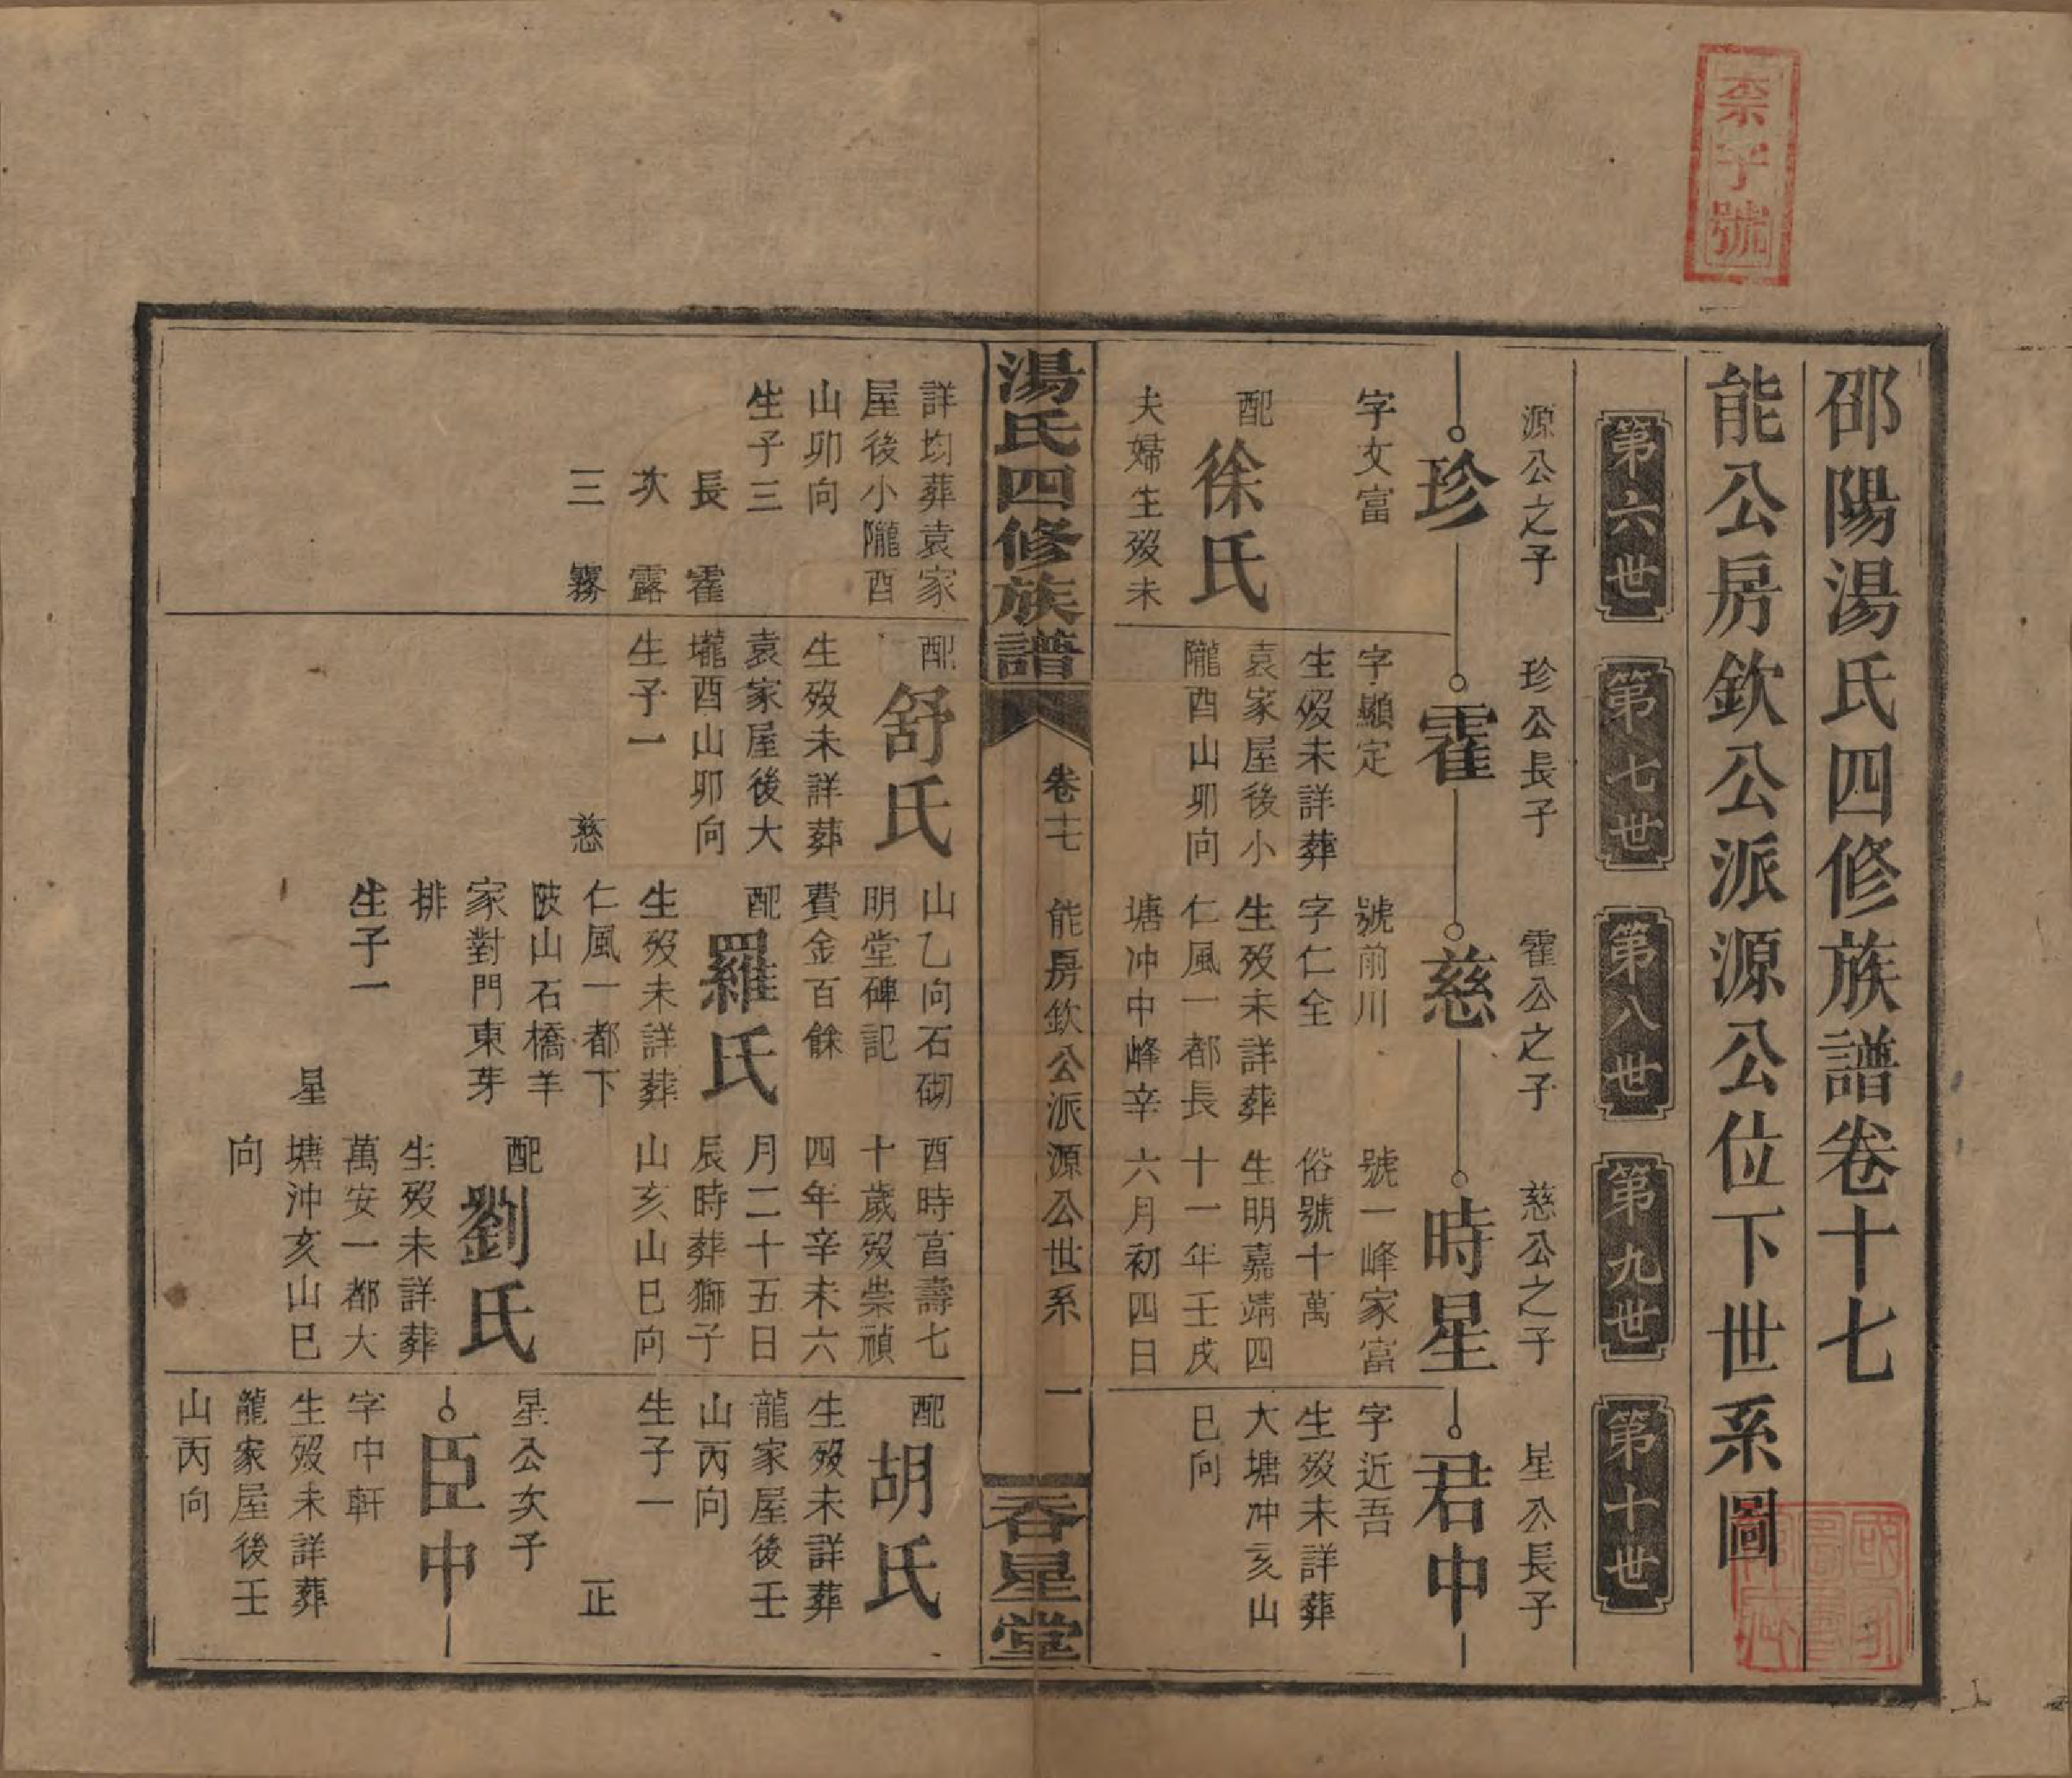 柰字號
邵陽湯氏四修族譜卷十七
能公房欽公派源公位下世系圖
第六世
第七世
第八世
第九世
第十世
源公之子
珍
字文富
配徐氏
夫婦生歿未
詳均葬袁家
屋後小隴酉
山卯向
生子三
長 霍
次 露
三 霧
珍公長子
霍
字顯定
生歿未詳葬
袁家屋後小
隴酉山卯向
配舒氏
生歿未詳葬
袁家屋後大
壠酉山卯向
生子一
慈
霍公之子
慈
號前川
字仁全
生歿未詳葬
仁風一都長
塘冲中峰辛
山乙向石砌
明堂碑記
費金百餘
配羅氏
生歿未詳葬
仁風一都下
陂山石橋羊
家對門東芽
排
生子一
星
慈公之子
時星
號一峰家富
俗號十萬
生明嘉靖四
十一年壬戌
六月初四日
酉時亯壽七
十歲歿崇禎
四年辛未六
月二十五日
辰時葬獅子
山亥山巳向
配劉氏
生歿未詳葬
萬安一都大
塘沖亥山巳
向
星公長子
君中
字近吾
生歿未詳葬
大塘冲亥山
巳向
配胡氏
生歿未詳葬
龍家屋後壬
山丙向
生子一
正
星公次子
臣中
字中軒
生歿未詳葬
龍家屋後壬
山丙向
湯氏四修族譜
卷十七
能房欽公派源公世系
一
吞星堂